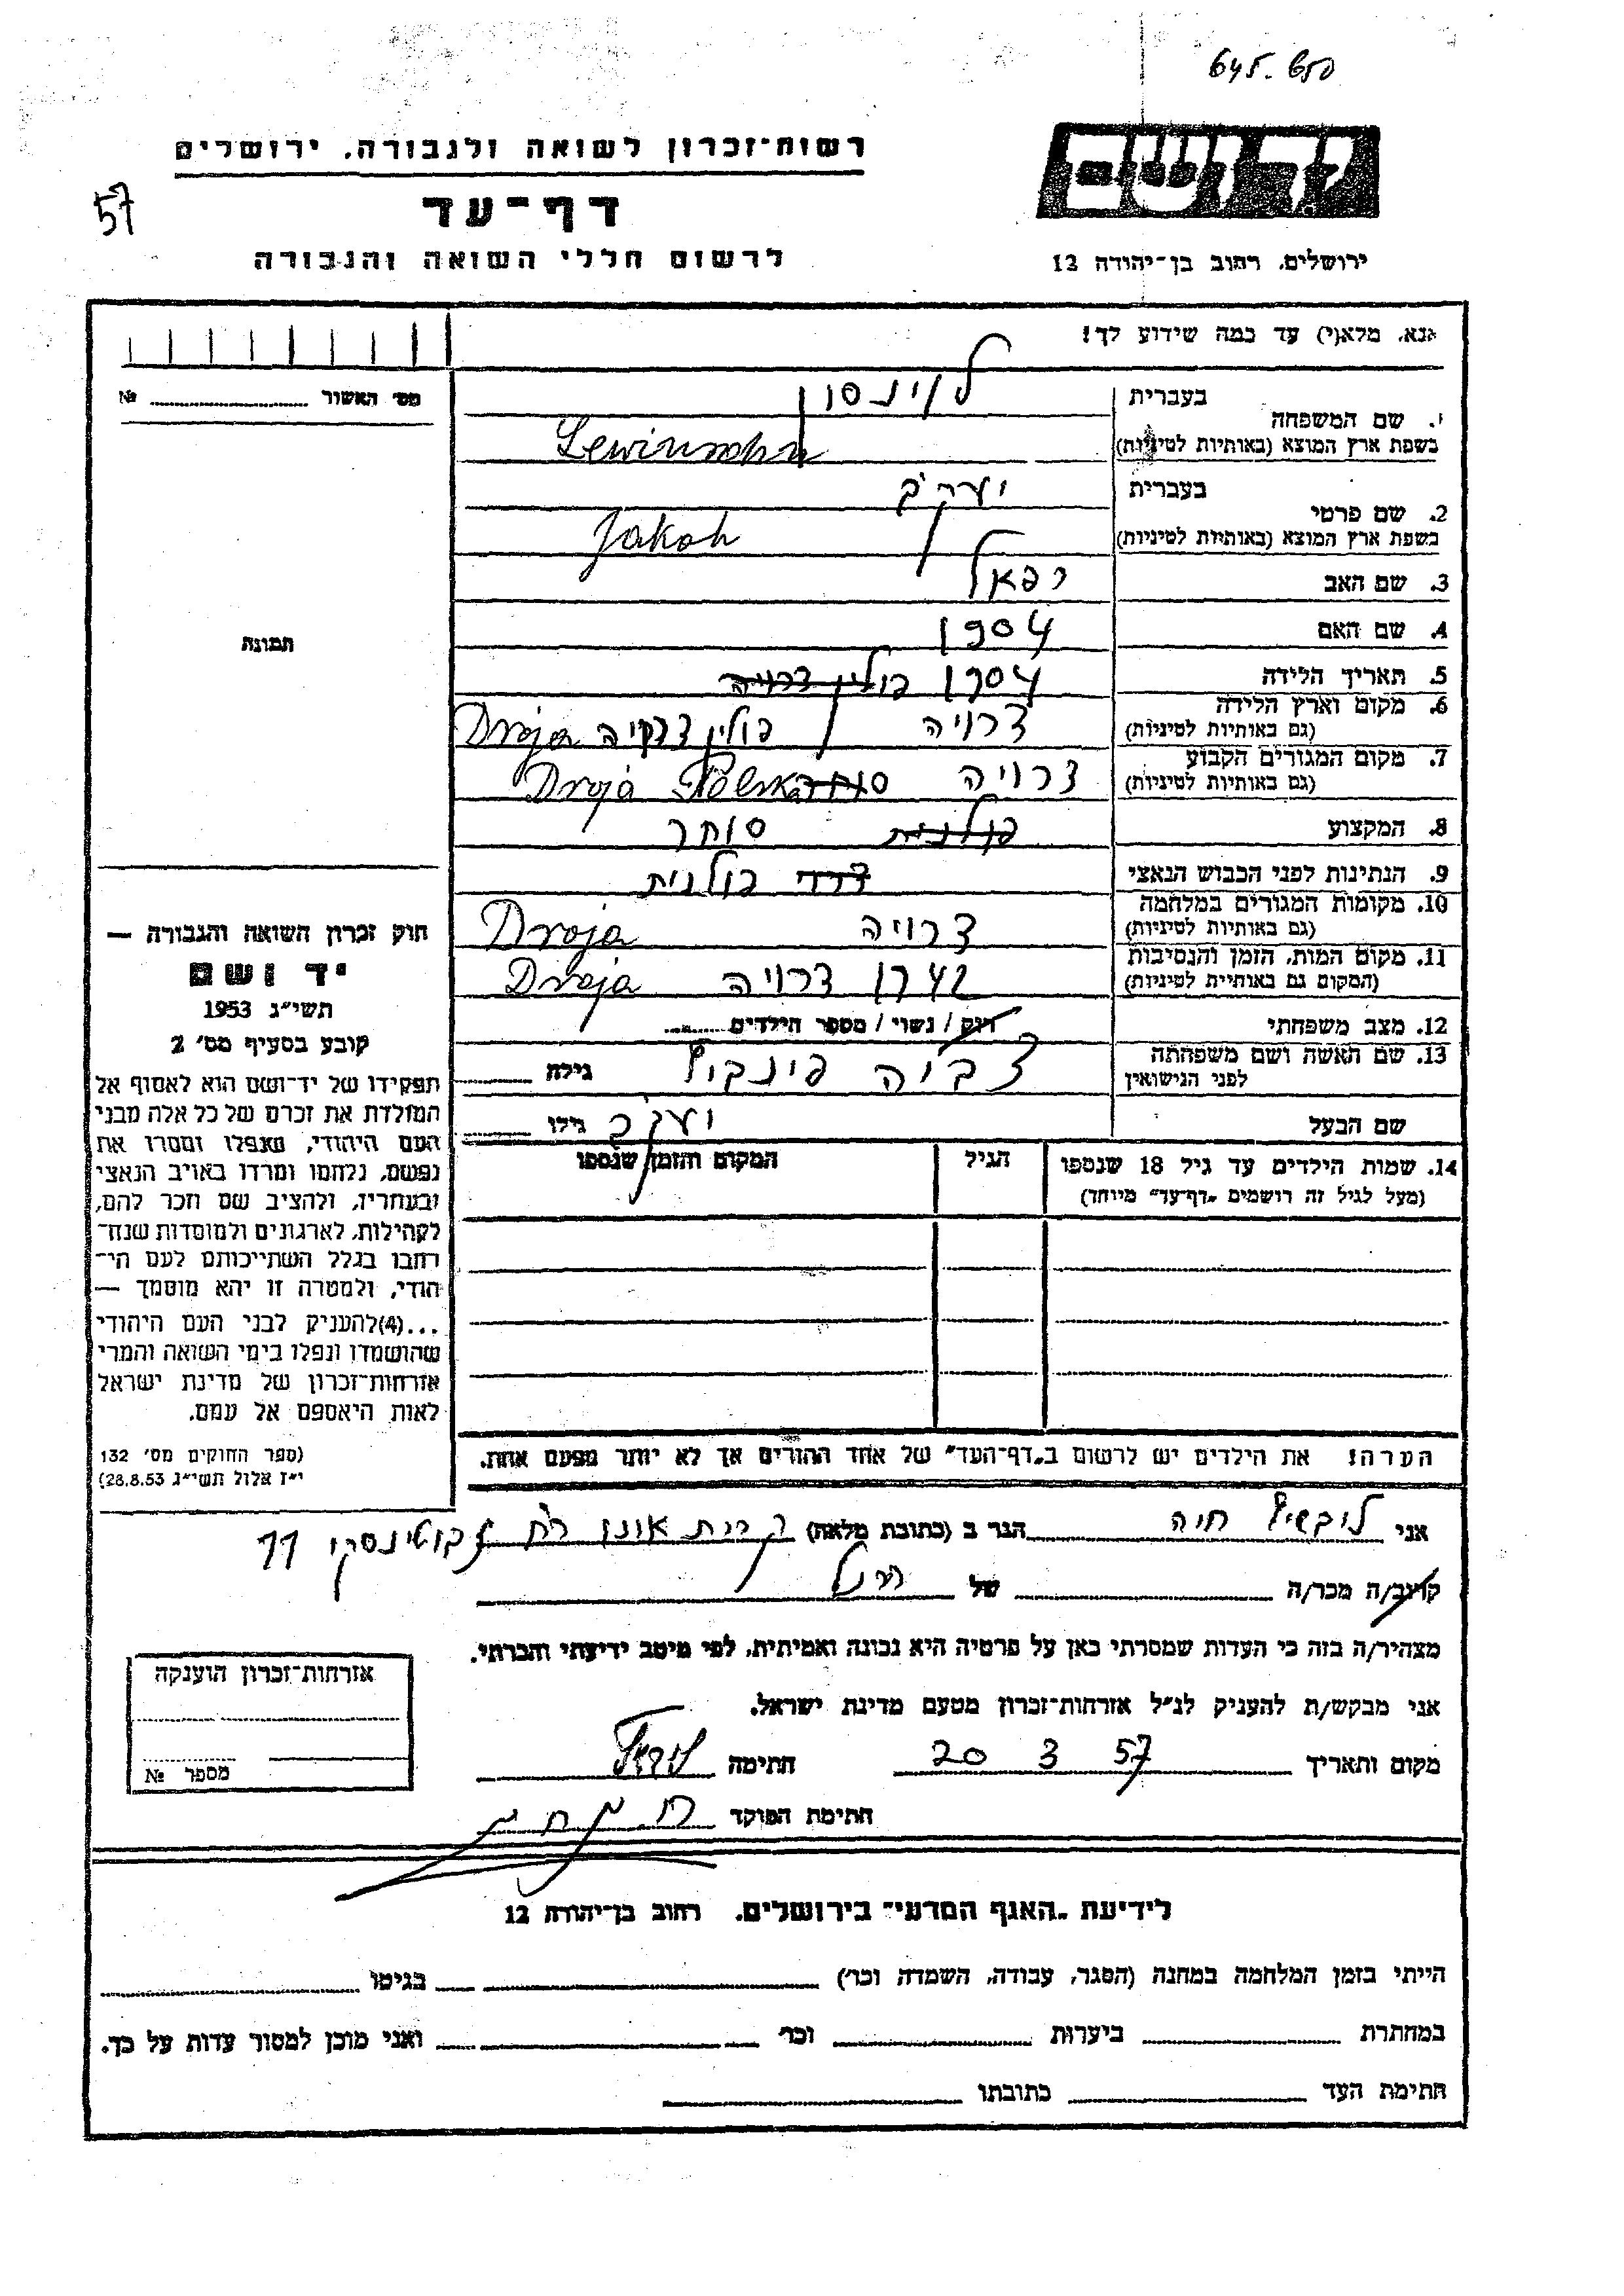 645-650
רשות־זכרון לשואה ולגבורה, ירושלים
57
דף־עד
לרשום חללי השואה והגבורה
ירושלים, רחוב בן־יהודה 12
אנא, מלא(י) עד כמה שידוע לך!
מס' האשור № 
בעברית לוינסון
1. שם המשפחה
בשפת ארץ המוצא (באותיות לטיניות) Lewinsohn
בעברית יעקב
2. שם פרטי
בשפת ארץ המוצא (באותיות לטיניות) Jakob
3. שם האב רפאל
4. שם האם
תמונה
5. תאריך הלידה 1904 פולין דרויה
6. מקום וארץ הלידה דרויה פולין דרויה Droja
(גם באותיות לטיניות)
7. מקום המגורים הקבוע דרויה סוחר Droja Polska
(גם באותיות לטיניות)
8. המקצוע פולנית סוחר
9. הנתינות לפני הכבוש הנאצי פולנית
10. מקומות המגורים במלחמה דרויה Droja
(גם באותיות לטיניות)
11. מקום המות, הזמן והנסיבות דרויה Droja
(המקום גם באותיות לטיניות)
12. מצב משפחתי רווק / נשוי / מספר הילדים
13. שם האשה ושם משפחתה צביה גילה
לפני הנישואין
שם הבעל יעקב גילו
14. שמות הילדים עד גיל 18 שנספו הגיל המקום והזמן שנספו
(מעל לגיל זה רושמים „דף־עד" מיוחד)
חוק זכרון השואה והגבורה —
יד ושם
תשי״ג 1953
קובע בסעיף מס' 2
תפקידו של יד־ושם הוא לאסוף אל
המולדת את זכרם של כל אלה מבני
העם היהודי, שנפלו ומסרו את
נפשם, נלחמו ומרדו באויב הנאצי
ובעוזריו, ולהציב שם וזכר להם,
לקהילות, לארגונים ולמוסדות שנח־
רבו בגלל השתייכותם לעם הי־
הודי, ולמטרה זו יהא מוסמך —
...(4)להעניק לבני העם היהודי
שהושמדו ונפלו בימי השואה והמרי
אזרחות־זכרון של מדינת ישראל
לאות היאספם אל עמם.
(ספר החוקים מס' 132
י״ז אלול תשי״ג 28.8.53)
הערה: את הילדים יש לרשום ב„דף־העד" של אחד ההורים אך לא יותר מפעם אחת.
אני חיה הגר ב (כתובת מלאה) קרית אונו רח ז'בוטינסקי 11
קרוב/ה מכר/ה של הנ"ל
מצהיר/ה בזה כי העדות שמסרתי כאן על פרטיה היא נכונה ואמיתית, לפי מיטב ידיעתי והכרתי.
אני מבקש/ת להעניק לנ״ל אזרחות־זכרון מטעם מדינת ישראל.
מקום ותאריך 20 3 57 חתימה
חתימת הפוקד
אזרחות־זכרון הוענקה
מספר №
לידיעת „האגף המדעי" בירושלים, רחוב בן־יהודה 12
הייתי בזמן המלחמה במחנה (הסגר, עבודה, השמדה וכו') בגיטו
במחתרת ביערות וכו' ואני מוכן למסור עדות על כך.
חתימת העד כתובתו